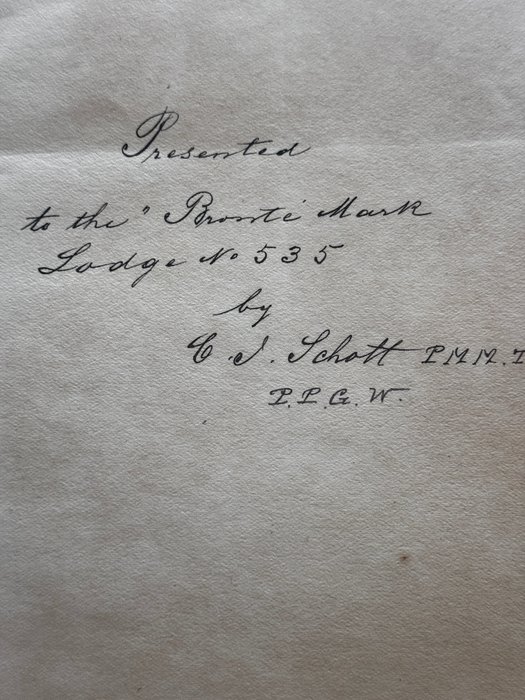 Presented
to the " Bronté Mark
Lodge No 535
by
C. J. Schott P.M.M.
P.P.G.W.